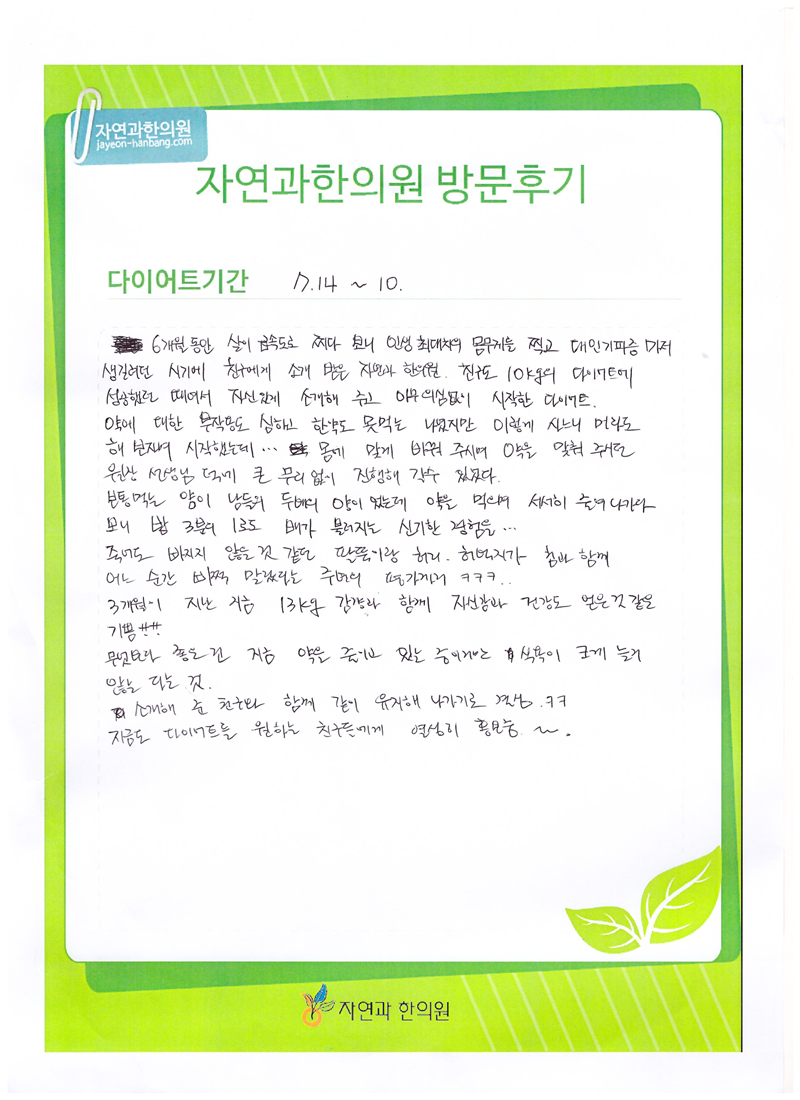 자연과한의원
jayeon-hanbang.com
자연과한의원 방문후기
다이어트기간 7.14 ~ 10.
6개월 동안 살이 급속도로 찌다 보니 인생 최대치의 몸무게를 찍고 대인기피증 마저
생길려던 시기에 친구에게 소개 받은 자연과 한의원. 친구도 10kg의 다이어트에
성공했던 때여서 자신있게 소개해 주고 아무 의심없이 시작한 다이어트.
약에 대한 부작용도 심하고 한약도 못먹는 나였지만 이렇게 사느니 뭐라도
해 보자며 시작했는데… 몸에 맞게 바꿔 주시며 약을 맞춰 주시던
원장 선생님 덕에 큰 무리 없이 진행해 갈수 있었다.
보통 먹는 양이 남들의 두배의 양이 었는데 약을 먹으며 서서히 줄여 나가다
보니 밥 3분의 1로도 배가 불러지는 신기한 경험을…
죽어도 빠지지 않을것 같던 팔뚝이랑 허리. 허벅지가 침과 함께
어느 순간 바짝 말랐다는 주변의 평가까지 ㅋㅋㅋ..
3개월이 지난 지금 13kg 감량과 함께 자신감과 건강도 얻은것 같은
기쁨!!!
무엇보다 좋은건 지금 약을 줄이고 있는 중이지만 식욕이 크게 늘지
않는 다는 것.
소개해 준 친구와 함께 같이 유지해 나가기로 결심.ㅋㅋ
지금도 다이어트를 원하는 친구들에게 열성히 홍보중 ~.
자연과 한의원